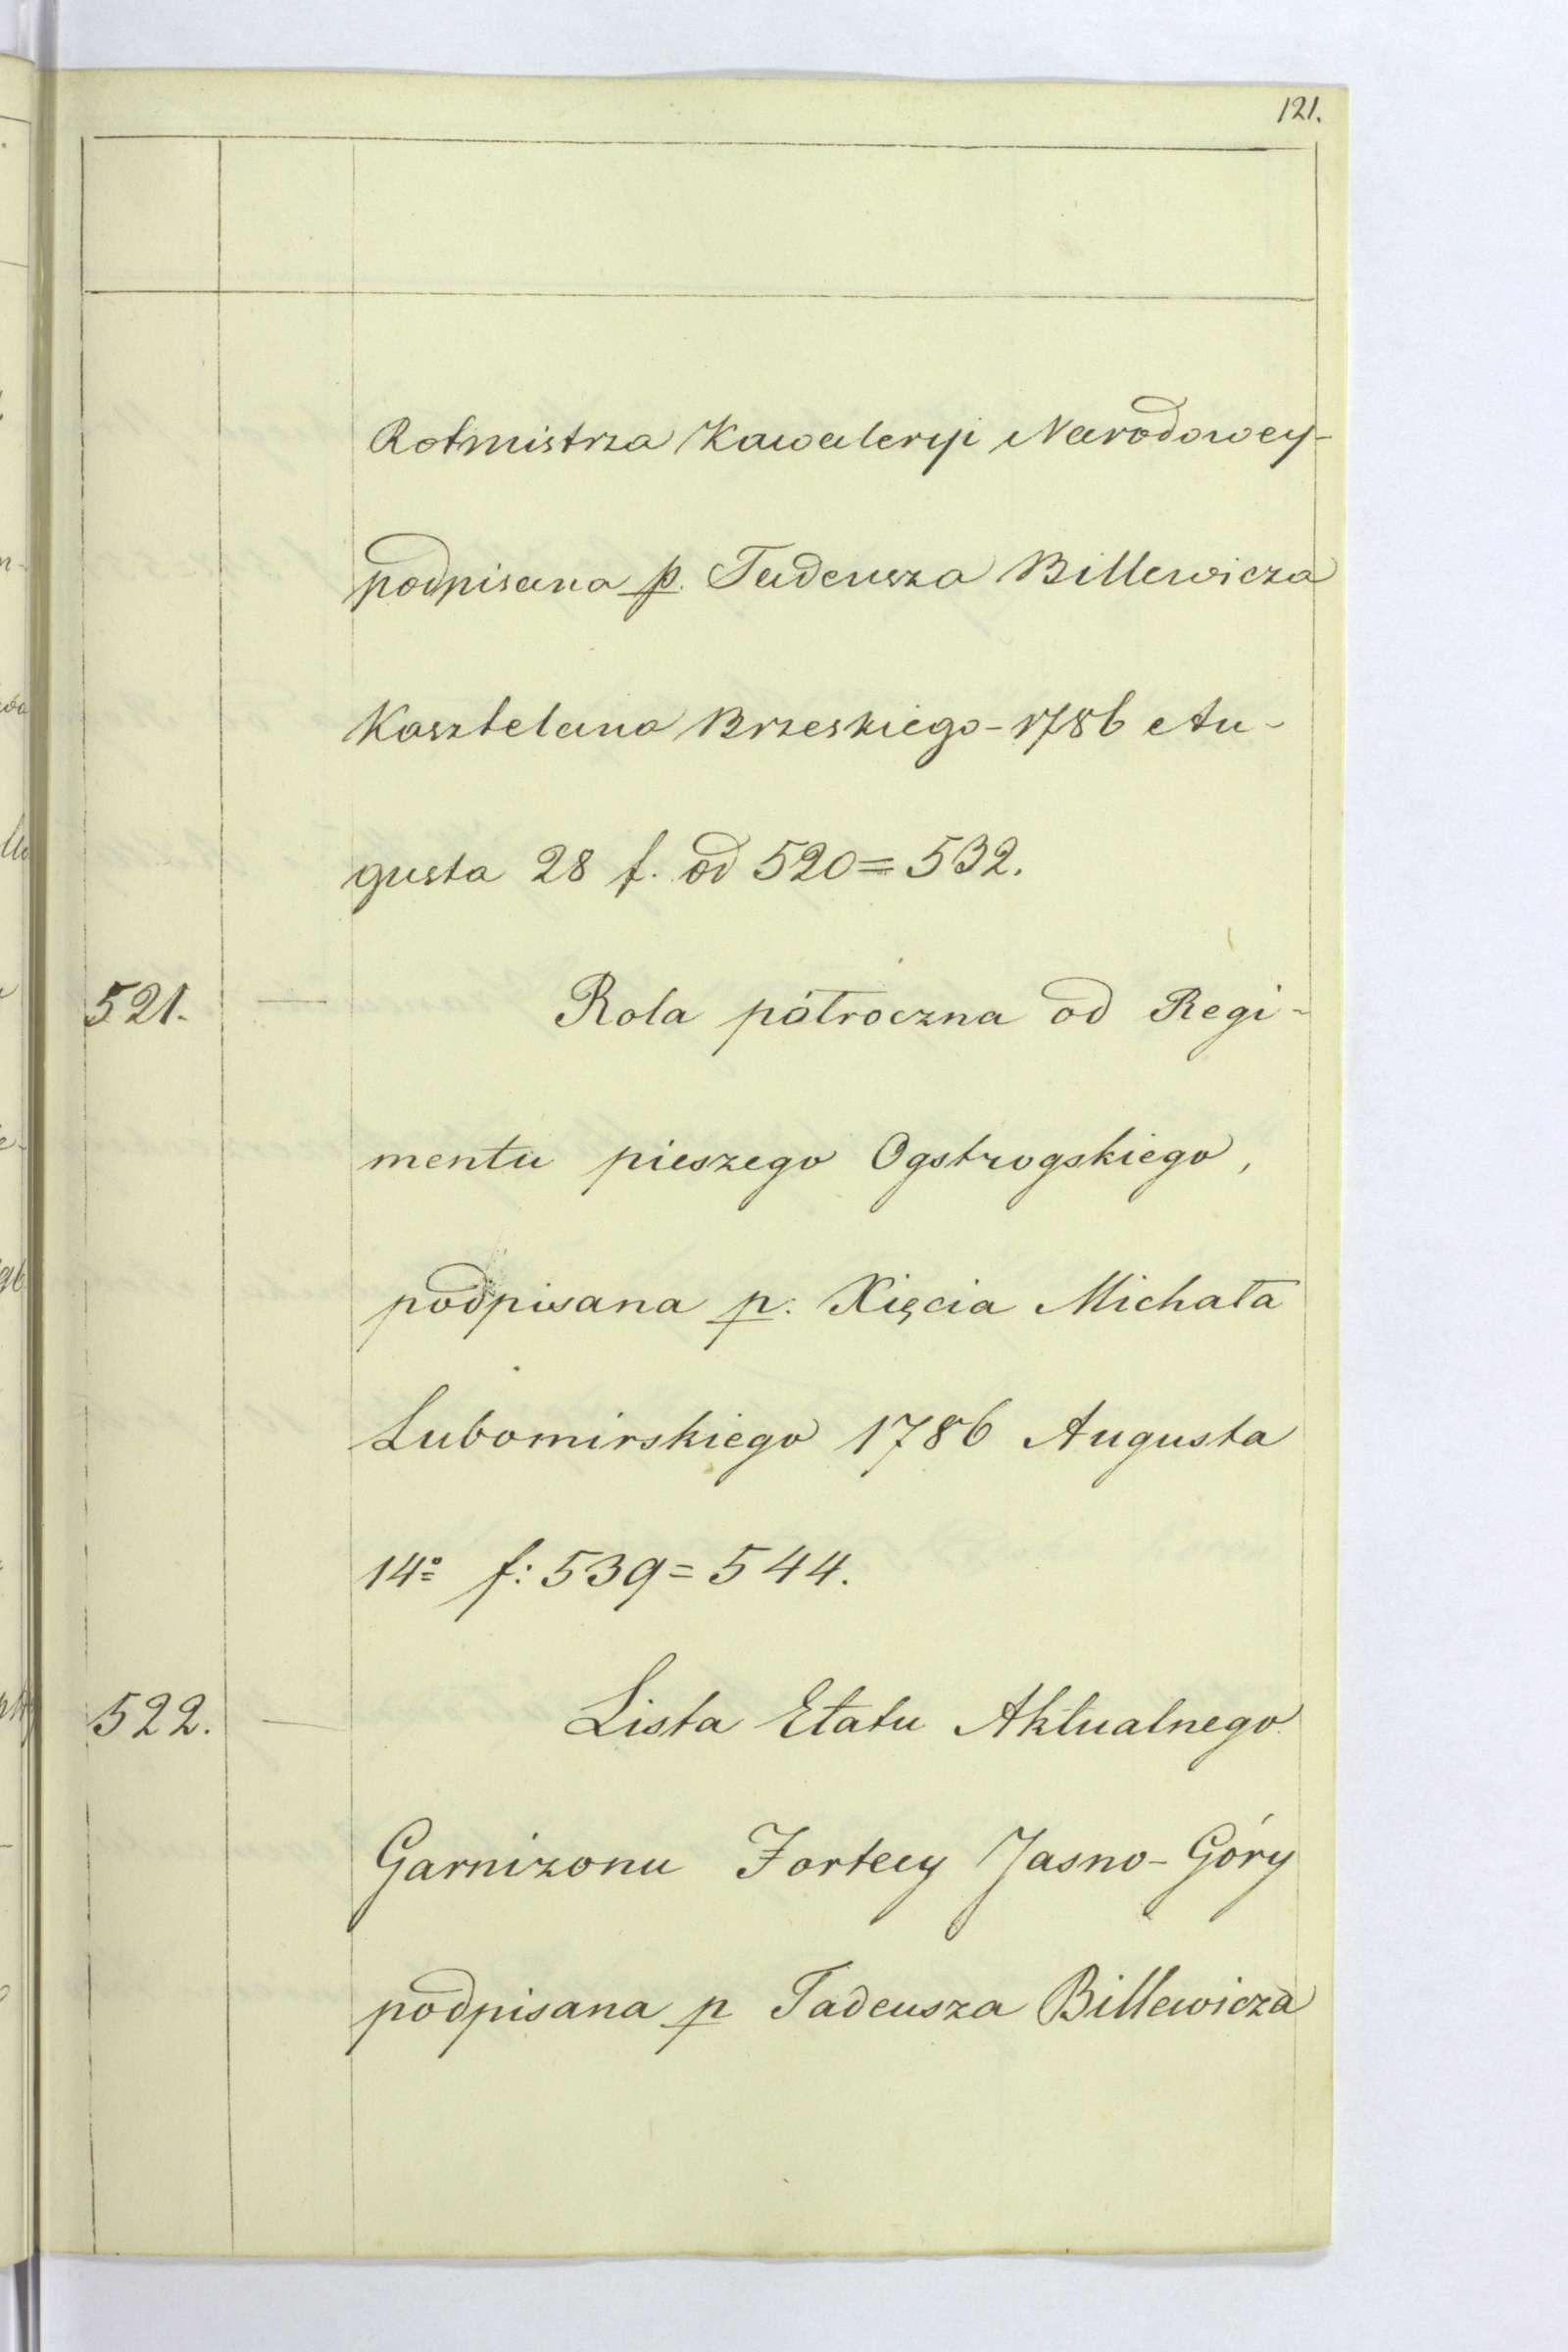 121.
Rotmistrza Kawaleryi Narodowey-
podpisana p. Tadeusza Billewicza
Kasztelana Brzeskiego - 1786 Au-
gusta 28 f. od 520=532.
521. — Rola półroczna od Regi-
mentu pieszego Ogstrogskiego,
podpisana p. Xięcia Michała
Lubomirskiego 1786 Augusta
14º f: 539=544.
522. — Lista Etatu Aktualnego
Garnizonu Fortecy Jasno-Góry
podpisana p Tadeusza Billewicza